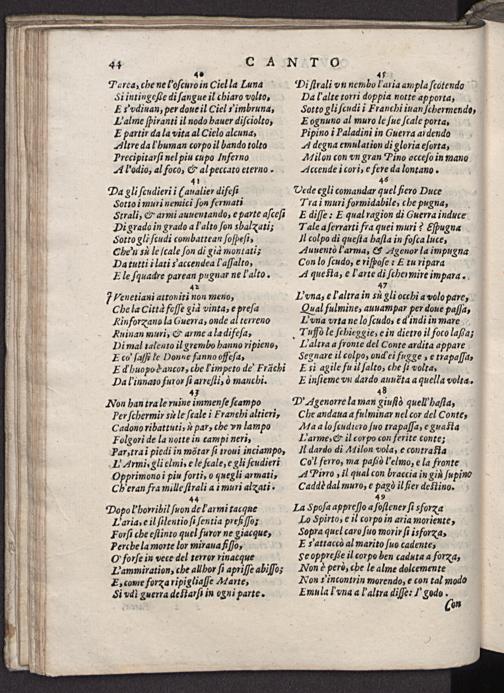 44
CANTO
40
Parea, che ne l'oscuro in Ciel la Luna
Si intingesse di sangue il chiaro volto,
E s'vdiuan, per doue il Ciel s'imbruna,
L'alme spiranti il nodo hauer disciolto,
E partir da la vita al Cielo alcuna,
Altre da l'human corpo il bando tolto
Precipitarsi nel piu cupo Inferno
A l'odio, al foco, & al peccato eterno.
41
Da gli scudieri i Caualier difesi
Sotto i muri nemici son fermati
Strali, & armi auuentando, e parte ascesi
Di grado in grado a l'alto son sbalzati;
Sotto gli scudi combattean sospesi,
Che'n sù le scale son di già montati;
Da tutti i lati s'accendea l'assalto,
E le squadre parean pugnar ne l'alto.
42
I Venetiani attoniti non meno,
Che la Città fosse già vinta, e presa
Rinforzano la Guerra, onde al terreno
Ruinan muri, & arme a la difesa,
Di mal talento il grembo hanno ripieno,
E co' sassi le Donne fanno offesa,
E d'huopo è ancor, che l'impeto de' Frãchi
Da l'innato furor si arresti, ò manchi.
43
Non han tra le ruine immense scampo
Per schermir sù le scale i Franchi altieri,
Cadono ributtati, ù par, che vn lampo
Folgori de la notte in campi neri,
Par, tra i piedi in mõtar si troui inciampo,
L'Armi, gli elmi, e le scale, e gli scudieri
Opprimono i piu forti, o quegli armati,
Ch'eran fra mille strali a i muri alzati.
44
Dopo l'horribil suon de l'armi tacque
L'aria, e il silentio si sentia prefisso;
Forsi che estinto quel furor ne giacque,
Perche la morte lor miraua fisso,
O' forse in vece del terror rinacque
L'ammiration, che allhor si aprisse abisso;
E, come forza ripigliasse Marte,
Si vdì guerra destarsi in ogni parte.
45
Di strali vn nembo l'aria ampla scotendo
Da l'alte torri doppia notte apporta,
Sotto gli scudi i Franchi iuan schermendo,
E ognuno al muro le sue scale porta,
Pipino i Paladini in Guerra ardendo
A degna emulation di gloria esorta,
Milon con vn gran Pino acceso in mano
Accende i cori, e fere da lontano.
46
Vede egli comandar quel fiero Duce
Tra i muri formidabile, che pugna,
E disse: E qual ragion di Guerra induce
Tale a serrarti fra quei muri? Espugna
Il colpo di questa hasta in fosca luce,
Auuentò l'arma, & Agenor la impugna
Con lo scudo, e rispose: E tu ripara
A questa, e l'arte di schermire impara.
47
L'vna, e l'altra in sù gli occhi a volo pare,
Qual fulmine, auuampar per doue passa,
L'vna vrta ne lo scudo, e d'indi in mare
Tuffò le schieggie, e in dietro il foco lassa;
L'altra a fronte del Conte ardita appare
Segnare il colpo, ond'ei fugge, e trapassa,
E sì agile fu il salto, che si volta,
E insieme vn dardo auuẽta a quella volta.
48
D'Agenorre la man giustò quell'hasta,
Che andaua a fulminar nel cor del Conte,
Ma a lo scudiero suo trapassa, e guasta
L'arme, & il corpo con ferite conte;
Il dardo di Milon vola, e contrasta
Co'l ferro, ma passò l'elmo, e la fronte
A Pirro, il qual con braccia in giù supino
Caddè dal muro, e pagò il fier destino.
49
La Sposa appresso a sostener si sforza
Lo Spirto, e il corpo in aria moriente,
Sopra quel caro suo morir si isforza,
E s'attaccò al marito suo cadente,
Se oppresse il corpo ben caduta a forza,
Non è però, che le alme dolcemente
Non s'incontrin morendo, e con tal modo
Emula l'vna a l'altra disse: I' godo.
Con